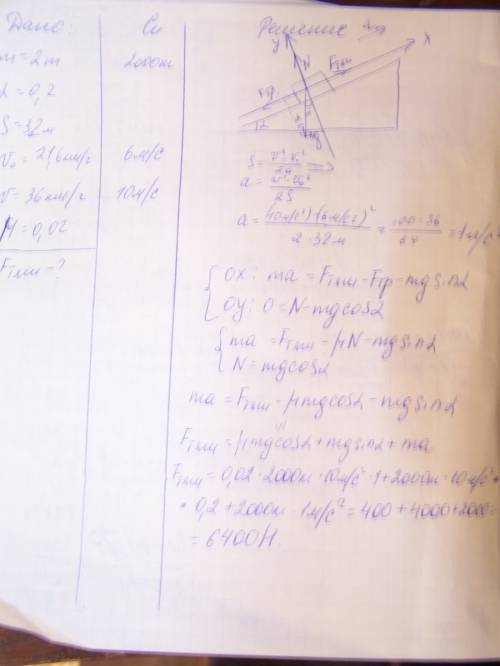 Дано:
Си
Решение
m = 2т
2000кг
α = 0,2
S = 32м
V₀ = 21,6км/г
6м/с
V = 36км/г
10м/с
μ = 0,02
Fтяги - ?
y
x
N
Fтяги
Fтр
mg
α
S = (V² - V₀²)/2a
a = (V² - V₀²)/2S
a = ((10м/с)² - (6м/с)²)/(2·32м) = (100-36)/64 = 1м/с²
OX: ma = Fтяги - Fтр - mg sinα
OY: 0 = N - mg cosα
ma = Fтяги - μN - mg sinα
N = mg cosα
ma = Fтяги - μmg cosα - mg sinα
Fтяги = μmg cosα + mg sinα + ma
Fтяги = 0,02 · 2000кг · 10м/с² · 1 + 2000кг · 10м/с² ·
· 0,2 + 2000кг · 1м/с² = 400 + 4000 + 2000 =
= 6400Н